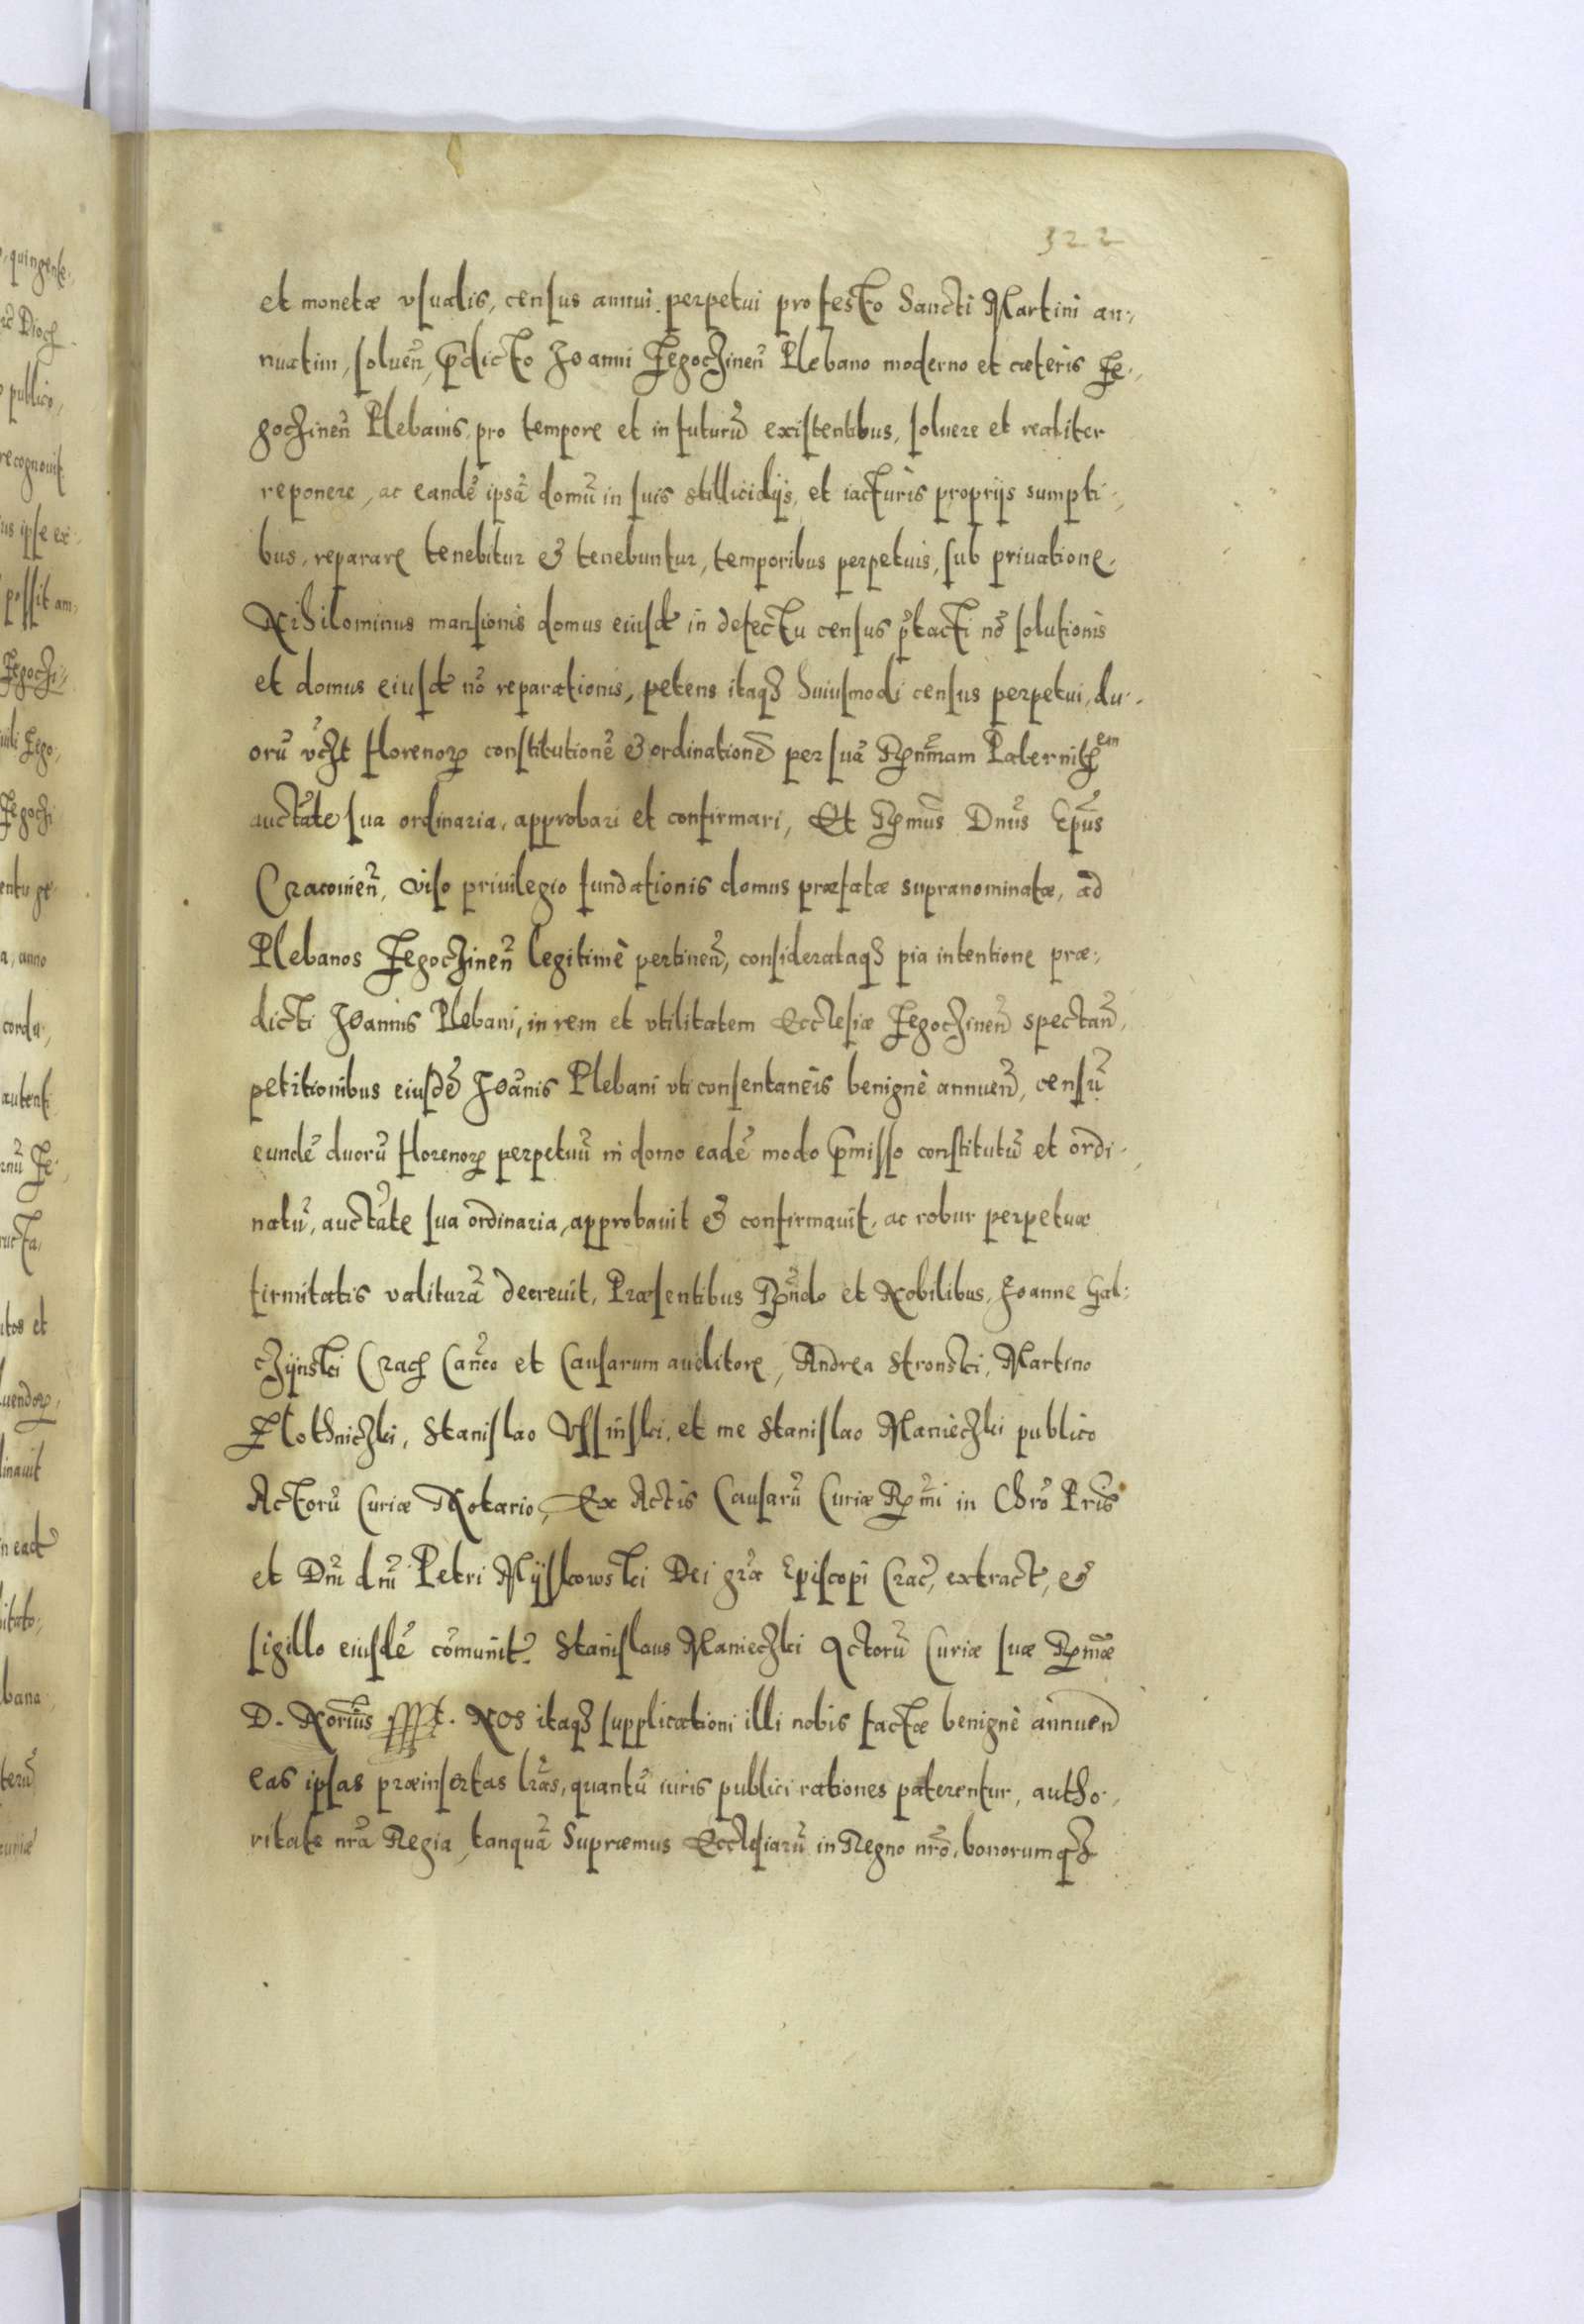 322
et monetæ vsualis, census annui perpetui pro festo Sancti Martini an-
nuatim, soluen̄, p̄dicto Joanni Fegoczinen̄ Plebano moderno et cæteris Fe-
goczinen̄ Plebanis, pro tempore et in futurū existentibus, soluere et realiter
reponere, ac eandē ipsā domū in suis stillicidijs, et iacturis proprijs sumpti-
bus, reparare tenebitur & tenebuntur, temporibus perpetuis, sub priuatione.
Nihilominus mansionis domus eiusd in defectu census p̄tacti nō solutionis
et domus eiusd nō reparationis, petens itaqʒ huiusmodi census perpetui, du-
orū vczt florenorꝝ constitutionē & ordinationē per suā Rnmam Paternitem
auctate sua ordinaria, approbari et confirmari, Et Rmus Dnus Epus
Cracouien̄, viso priuilegio fundationis domus præfatæ supranominatæ, ad
Plebanos Fegoczinen̄ legitimè pertinen̄, considerataqʒ pia intentione præ-
dicti Joannis Plebani, in rem et vtilitatem Ecclesiæ Fegoczinen̄ spectan̄,
petitionibus eiusdē Joānis Plebani vti consentaneis benignè annuen̄, censū
eundē duorū florenorꝝ perpetuū in domo eadē modo p̄misso constitutū et ordi-
natū, auctate sua ordinaria, approbauit & confirmauit, ac robur perpetuæ
firmitatis valiturā decreuit, Præsentibus Rndo et Nobilibus, Joanne Gal-
czÿnski Crac Canco et Causarum auditore, Andrea Stronski, Martino
Plothniczki, Stanislao Vssinski, et me Stanislao Manieczki publico
Actorū Curiæ Notario, Ex Actis Causarū Curiæ Rmi in Chrō Pris
et Dni dni Petri Myskowski Dei grā Episcopi Crac, extract, &
sigillo eiusdē cōmunit. Stanislaus Manieczki Actorū Curiæ suæ Rmæ
D. Norius sssst. Nos itaqʒ supplicationi illi nobis factæ benignè annuen
eas ipsas præinsertas lrās, quantū iuris publici rationes paterentur, autho-
ritate nrā Regia, tanquā Supræmus Ecclesiarū in Regno nrō, bonorumqʒ